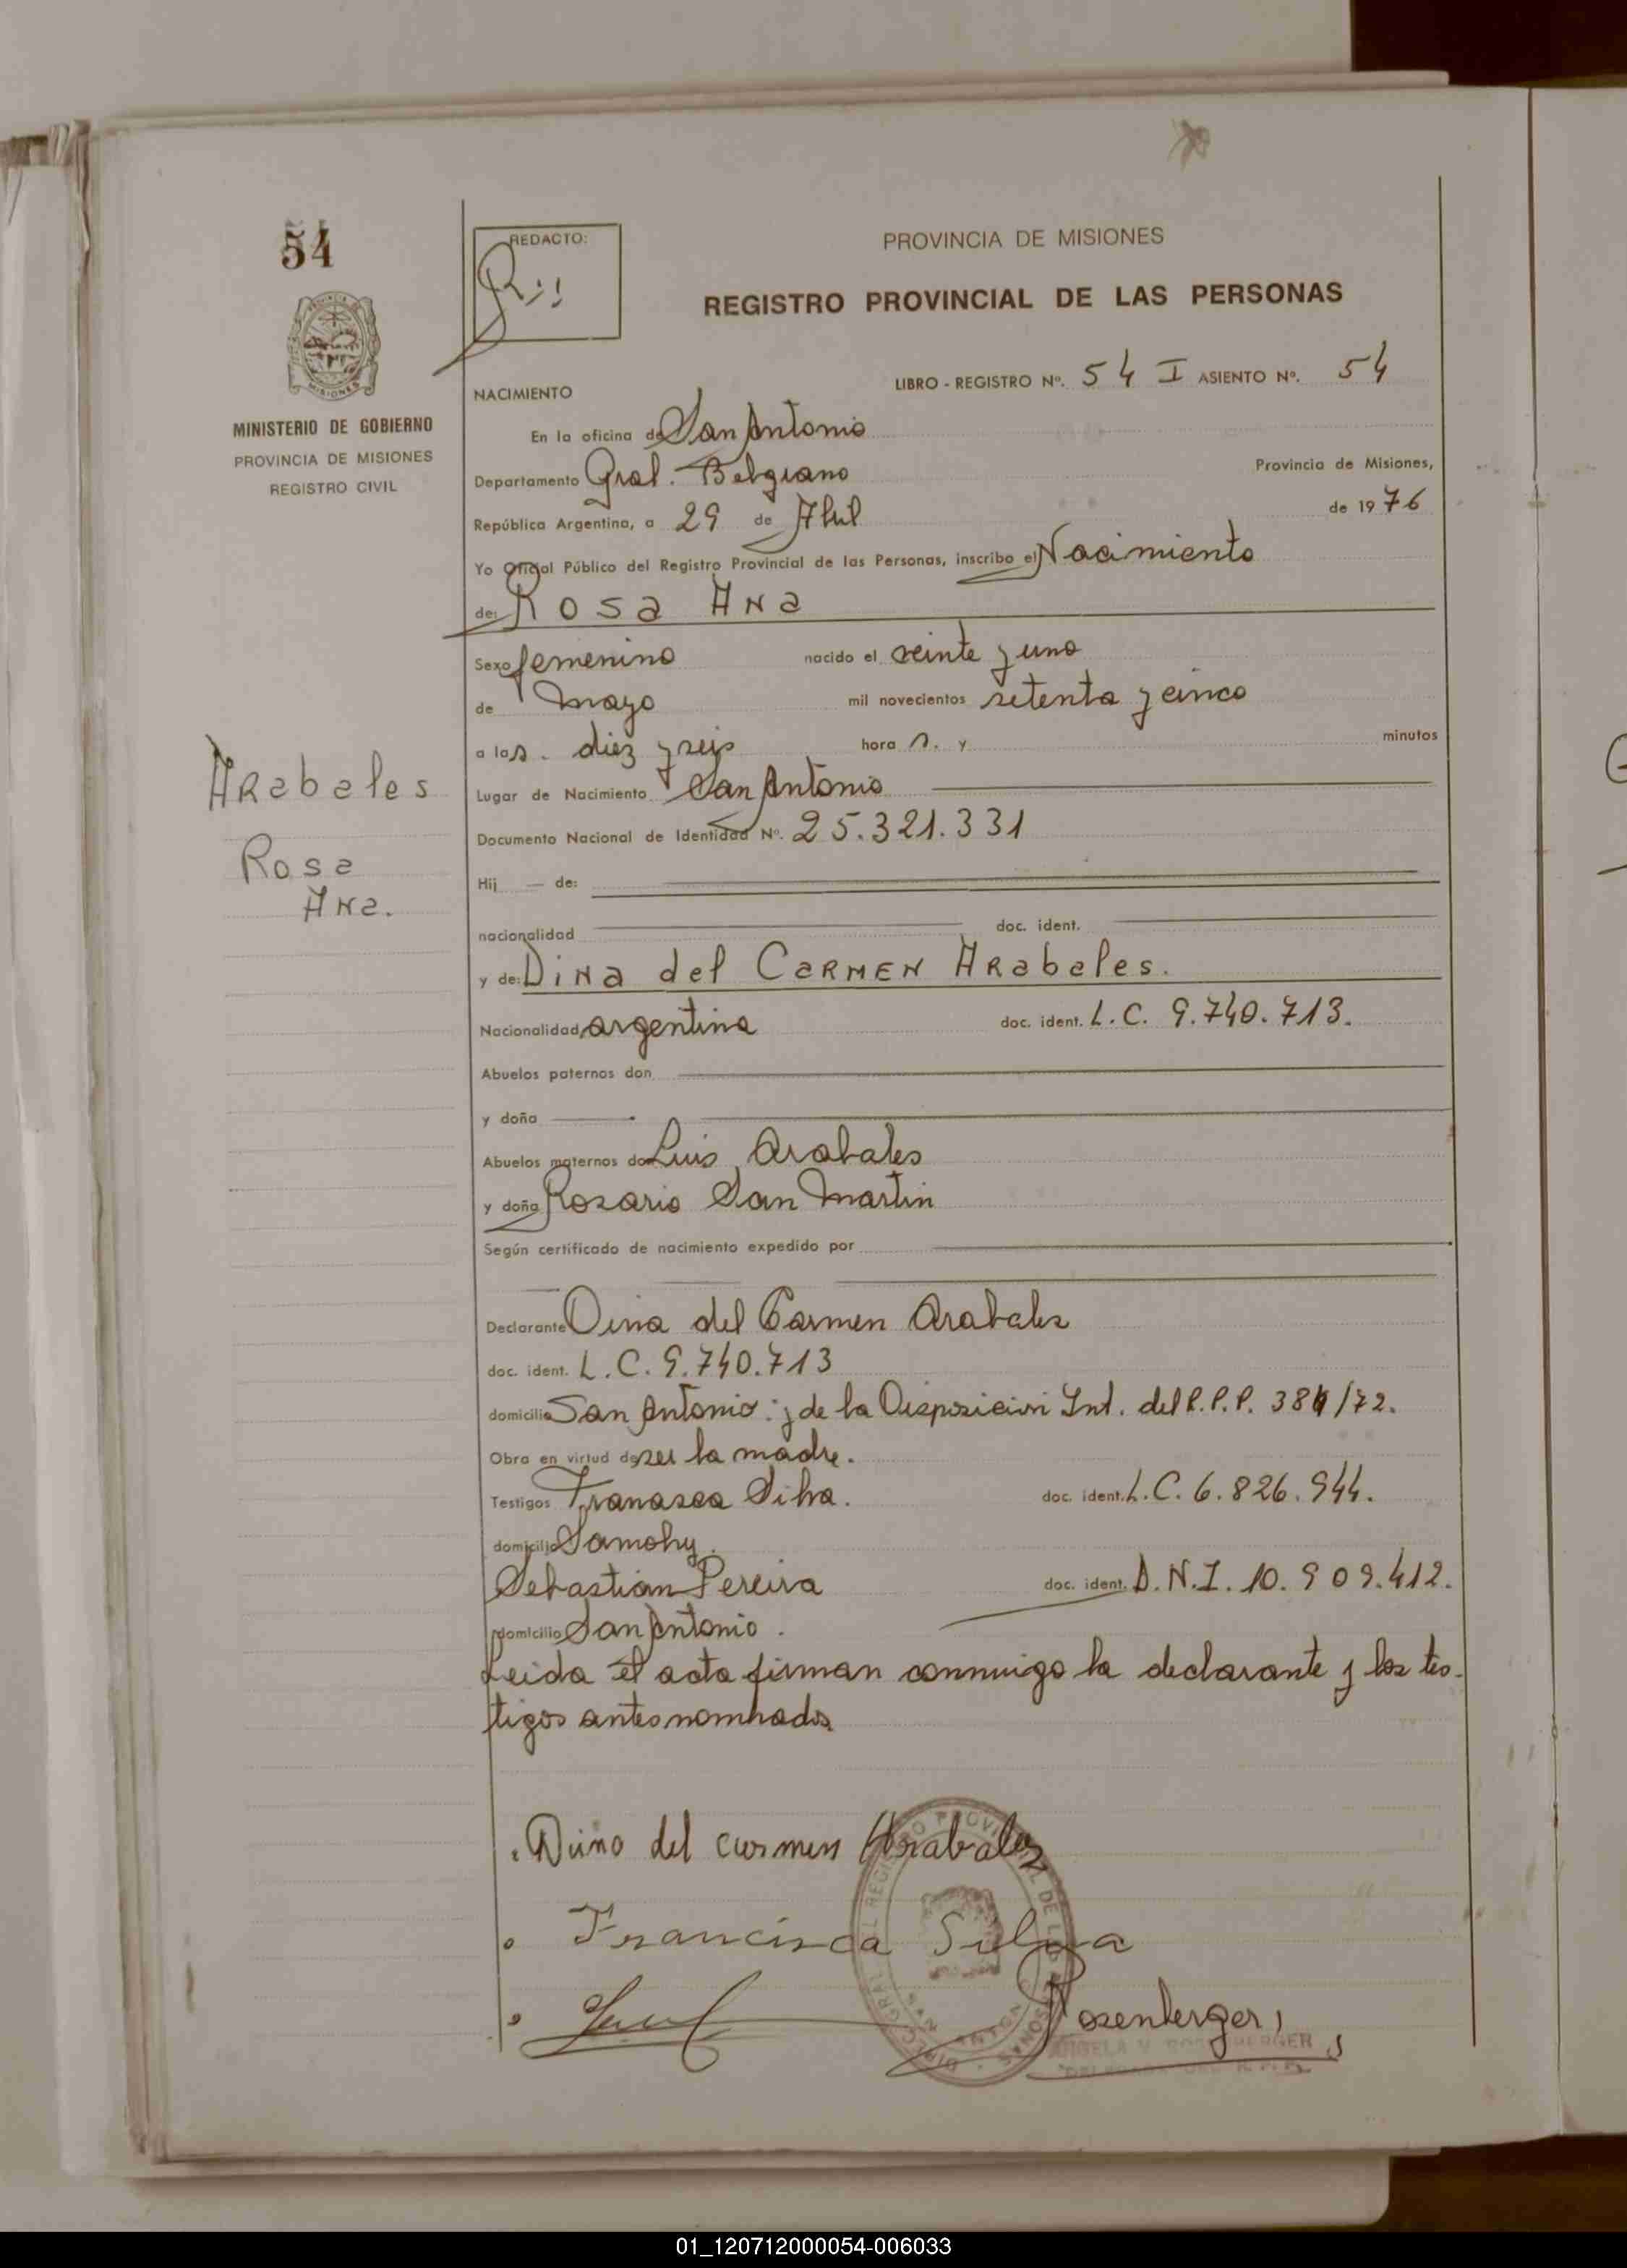 54
REDACTO:
PROVINCIA DE MISIONES
REGISTRO PROVINCIAL DE LAS PERSONAS
MINISTERIO DE GOBIERNO
PROVINCIA DE MISIONES
REGISTRO CIVIL
NACIMIENTO
LIBRO - REGISTRO Nº. 54 I ASIENTO Nº. 54
En la oficina de San Antonio
Departamento Gral. Belgrano Provincia de Misiones,
República Argentina, a 29 de Abril de 1976
Yo Oficial Público del Registro Provincial de las Personas, inscribo el Nacimiento
de: Rosa Ana
Sexo femenino nacido el veinte y uno
de mayo mil novecientos setenta y cinco
a las. diez y seis hora s. y minutos
Arabales
Rosa
Ana.
Lugar de Nacimiento San Antonio
Documento Nacional de Identidad Nº. 25.321.331
Hij — de:
nacionalidad doc. ident.
y de: Dina del Carmen Arabales.
Nacionalidad argentina doc. ident. L.C. 9.740.713.
Abuelos paternos don
y doña
Abuelos maternos don Luis Arabales
y doña Rosario San Martin
Según certificado de nacimiento expedido por
Declarante Dina del Carmen Arabales
doc. ident. L.C. 9.740.713
domicilio San Antonio: y de la Disposición Int. del R.P.P. 384/72.
Obra en virtud de ser la madre.
Testigos Francisca Silva. doc. ident. L.C. 6.826.944.
domicilio
Sebastian Pereira doc. ident. D.N.I. 10.909.412.
domicilio San Antonio.
Leida el acta firman conmigo la declarante y los tes-
tigos antes nombrados
Dina del carmen Arabales
Francisca Silva
Rosenberger
ANGELA V. ROSENBERGER
01_120712000054-006033